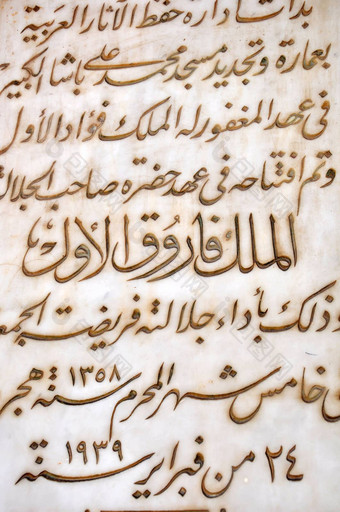 بدأت إدارة حفظ الآثار العربية
بعمارة وتجديد مسجد محمد على باشا الكبير
فى عهد المغفور له الملك فؤاد الأول
وتم افتتاحه فى عهد حضرة صاحب الجلالة
الملك فاروق الأول
وذلك بأداء جلالته فريضة الجمعة
خامس شهر المحرم سنة ١٣٥٨ هجر
٢٤ من فبراير سنة ١٩٣٩